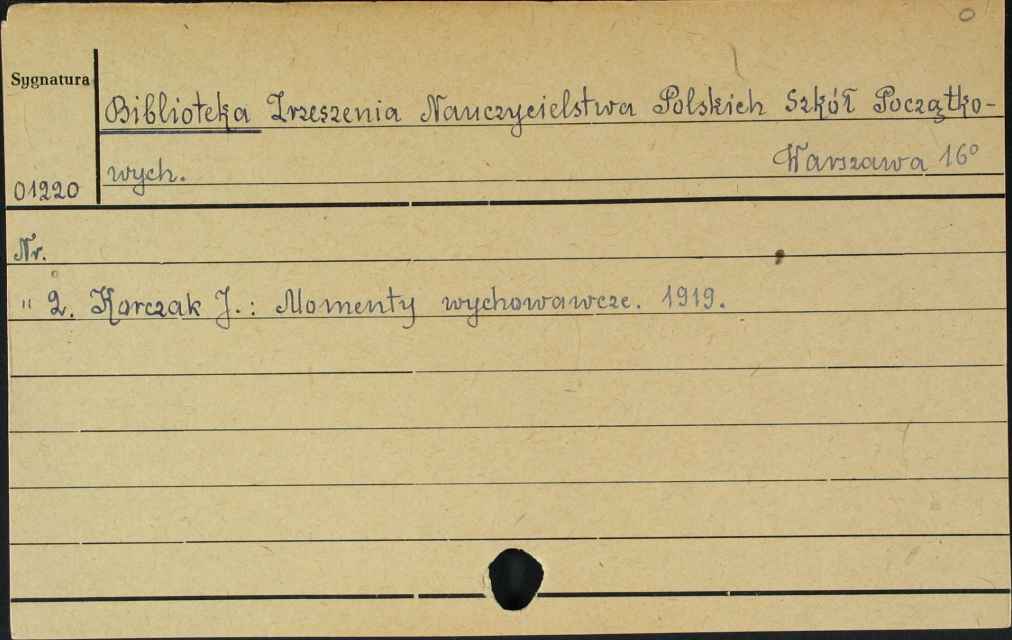 0
Sygnatura
Biblioteka Zrzeszenia Nauczycielstwa Polskich Szkół Początko-
wych. Warszawa 16°
01220
Nr.
" 2. Korczak J.: Momenty wychowawcze. 1919.